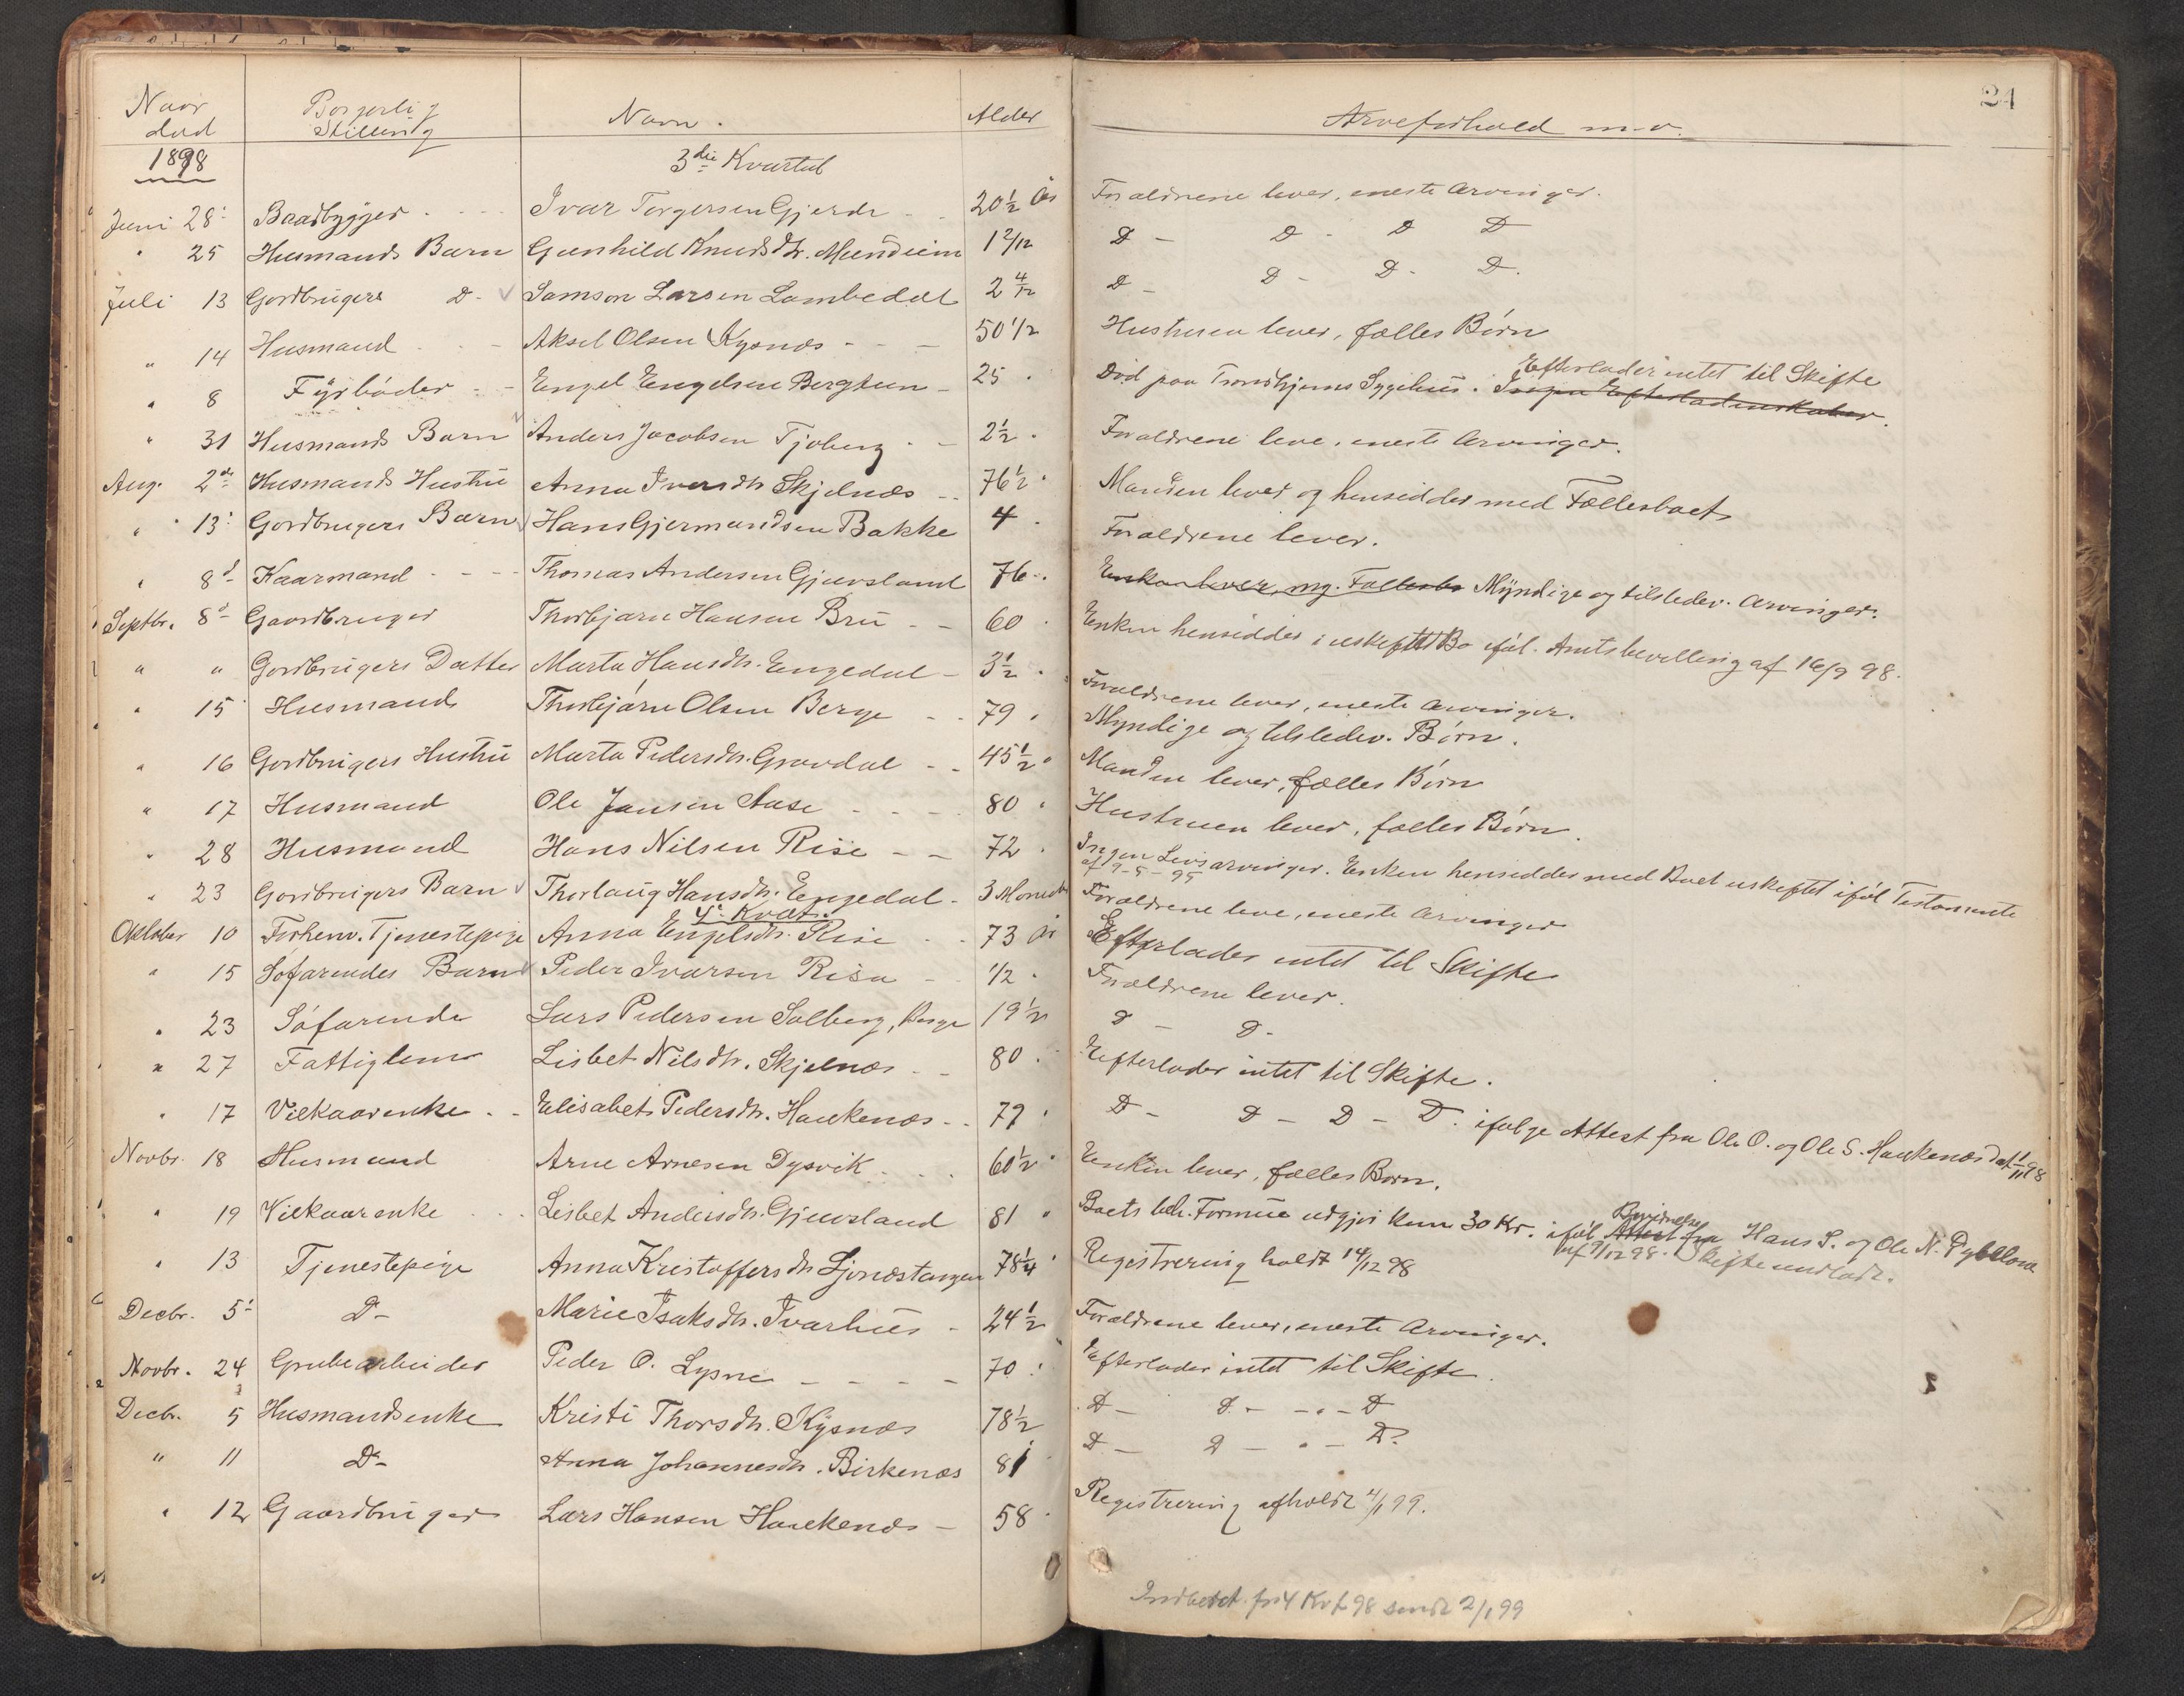 24
Naar død | Borgerlig Stilling | Navn. | Alder | Arveforhold m.v.
1898 | 3die Kvartal
Juni 28 | Baadbygger | Ivar Torgersen Gjerde | 20 1/2 År | Forældrene lever, eneste Arvinger.
" 25 | Husmands Barn | Gunhild Knudsdtr. Mundheim | 1 2/12 | D - D - D D
Juli 13 | Gordbrugers D- | Samson Larsen Lambedal | 2 4/12 | D - D - D - D.
" 14 | Husmand | Aksel Olsen Kysnæs | 50 1/2 | Hustruen lever, fælles Børn
" 8 | Fyrbøder | Engel Engelsen Bergtun | 25 | Død paa Trondhjems Sygehus. Efterlader intet til Skifte
" 31 | Husmands Barn | Anders Jacobsen Tjoberg | 2 1/2 | Forældrene leve, eneste Arvinger.
Aug. 2de | Husmands Hustru | Anna Iversdtr Skjelnæs | 76 1/2 | Manden lever og hensidder med Fællesboet
" 13 | Gordbrugers Barn | Hans Gjermundsen Bakke | 4 | Forældrene lever.
" 8d | Kaarmand | Thomas Andersen Gjuvsland | 76 | Enken lever, og Fællesbo Myndige og tilstedev. Arvinger.
Septbr. 8d | Gaardbruger | Thorbjørn Hansen Bru | 60 | Enken hensidder i uskiftet Bo iføl. Amtsbevilling af 16/9 98.
" " | Gordbrugers Datter | Marta Hansdtr. Engedal | 3 1/2 | Forældrene lever, eneste Arvinger.
" 15 | Husmand | Thorbjørn Olsen Berge | 79 | Myndige og tilstedev. Børn.
" 16 | Gordbrugers Hustru | Marta Pedersdtr. Gravdal | 45 1/2 | Manden lever, fælles Børn
" 17 | Husmand | Ole Jansen Aase | 80 | Hustruen lever, fælles Børn.
" 28 | Husmand | Hans Nilsen Rise | 72 | Ingen Livsarvinger. Enken hensidder med Boet uskiftet iføl Testamente af 9-5-95
" 23 | Gordbrugers Barn | Thorlaug Hansdtr. Engedal | 3 Moneder | Forældrene leve, eneste Arvinger
4de Kvart.
Oktober 10 | Forhenv. Tjenestepige | Anna Engelsdtr. Rise | 73 År | Efterlader intet til Skifte
" 15 | Søfarendes Barn | Peder Ivarsen Risa | 1/2 | Forældrene lever.
" 23 | Søfarende | Lars Pedersen Solberg, Berge | 19 1/2 | D - D -
" 27 | Fattiglem | Lisbet Nilsdtr. Skjelnæs | 80 | Efterlader intet til Skifte.
" 17 | Vilkaarenke | Elisabet Pedersdtr. Haukenæs | 79 | D - D - D - D. ifølge Attest fra Ole O. og Ole S. Haukenæs dat 1/11 98
Novbr. 18 | Husmand | Arne Arnesen Dysvik | 60 1/2 | Enken lever, fælles Børn.
" 19 | Vilkaarenke | Lisbet Andersdtr. Gjuvsland | 81 | Boets beh. Formue udgjør kun 30 Kr. iføl. Attest Bevidnelse fra Hans S. og Ole N. af 9/12 98. Skifte undladt.
" 13 | Tjenestepige | Anna Kristoffersdtr Ljonæstangen | 78 1/4 | Registrering holdt 14/12 98
Decbr. 5 | D- | Marie Isaksdtr. Ivarhus | 24 1/2 | Forældrene lever, eneste Arvinger.
Novbr. 24 | Grubearbeider | Peder O. Lysne | 70 | Efterlader intet til Skifte.
Decbr. 5 | Husmandsenke | Kristi Thorsdtr. Kysnæs | 78 1/2 | D - D - - " - D
" 11 | D- | Anna Johannesdtr. Birkenæs | 81 | D - D - " - D.
" 12 | Gaardbruger | Lars Hansen Haukenæs | 58 | Registrering afholdt 4/1 99.
Indberet. for 4 Kvt 98 sendt 2/1 99